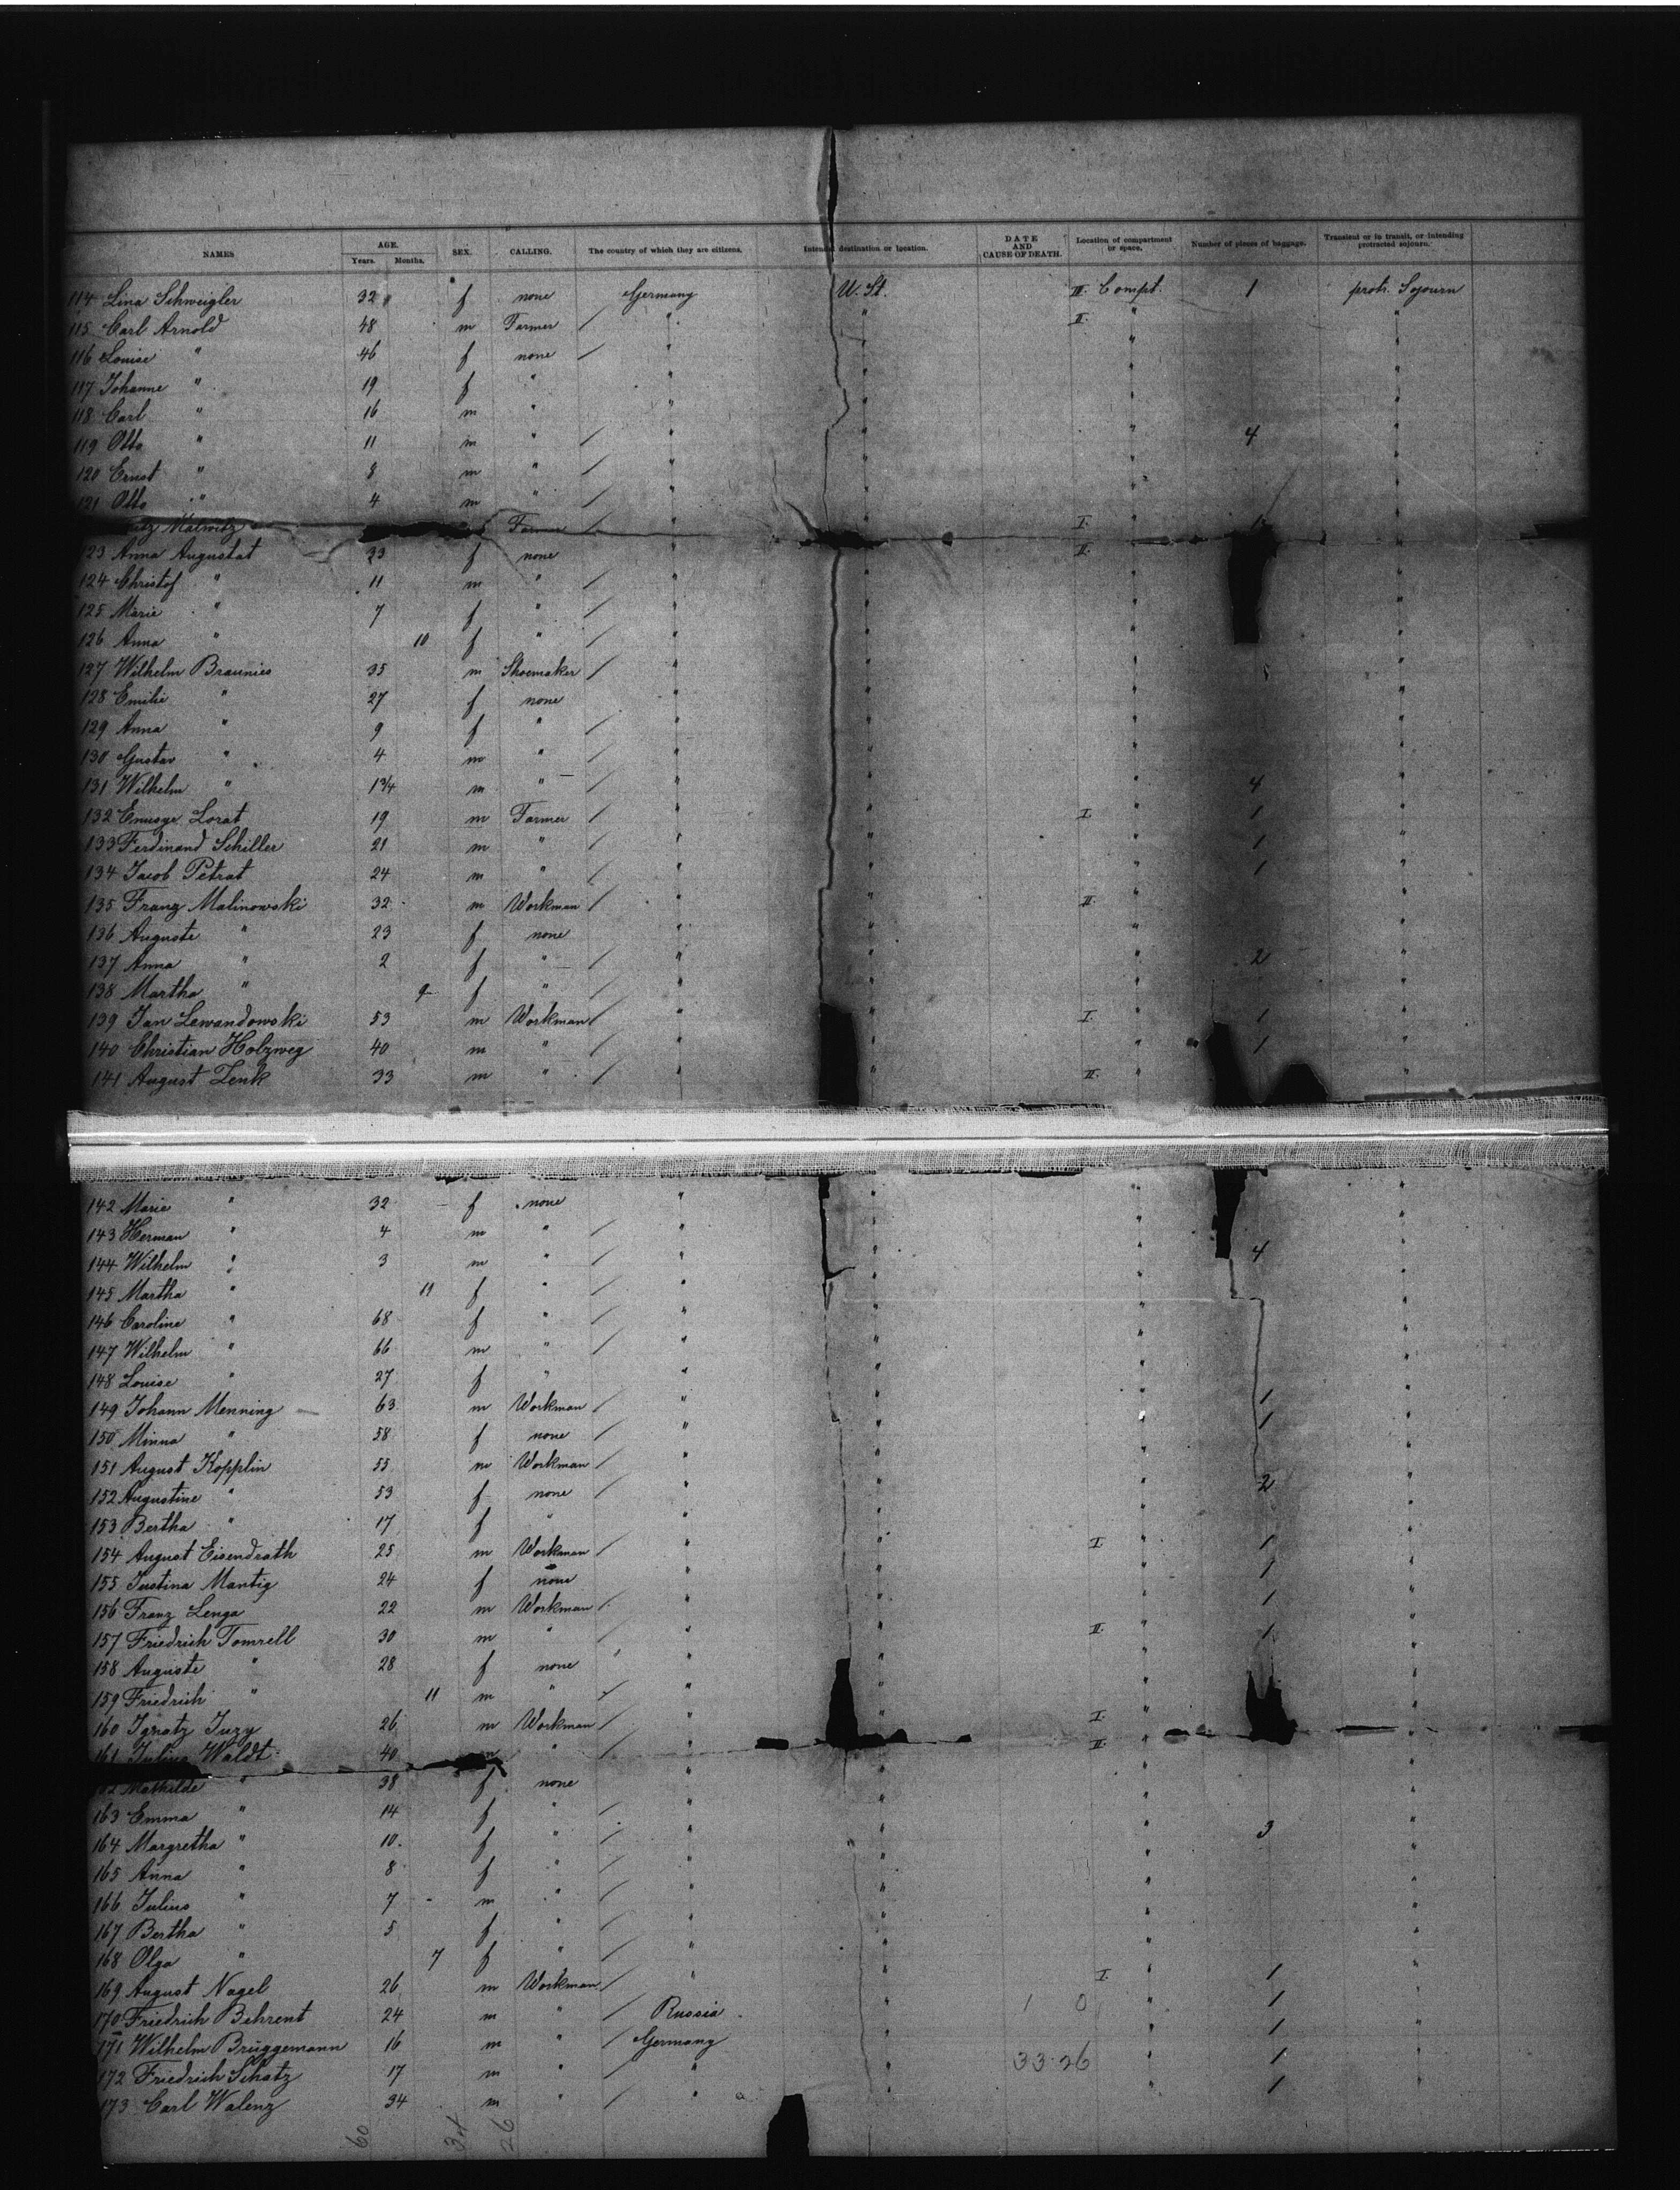 NAMES AGE. Years. Months. SEX. CALLING. The country of which they are citizens. Intended destination or location. DATE AND CAUSE OF DEATH. Location of compartment or space. Number of pieces of baggage. Transient or in transit, or intending protracted sojourn.
114 Lina Schweigler 32 f none Germany U. St. II. Compt. 1 protr. Sojourn
115 Carl Arnold 48 m Farmer / " " II. " "
116 Louise " 46 f none / " " " "
117 Johanne " 19 f " " " " "
118 Carl " 16 m " " " " "
119 Otto " 11 m " / " " " 4 "
120 Ernst " 8 m " / " " " "
121 Otto " 4 m " / " " " "
Malwitz Farmer / " I. "
123 Anna Augustat 33 f none " " II. "
124 Christof " 11 m " / " " " "
125 Marie " 7 f " / " " " "
126 Anna " 10 f " / " " " "
127 Wilhelm Braunies 35 m Shoemaker / " " " "
128 Emilie " 27 f none " " " "
129 Anna " 9 f " / " " " "
130 Gustav " 4 m " / " " " "
131 Wilhelm " 1 3/4 m " / " " " 4 "
132 Lorat 19 m Farmer / " " I. " 1 "
133 Ferdinand Schiller 21 m " / " " " 1 "
134 Jacob Petrat 24 m " / " " " 1 "
135 Franz Malinowski 32 m Workman / " " II. " "
136 Auguste " 23 f none " " " "
137 Anna " 2 f " / " " " 2 "
138 Martha " 9 f " / " " " "
139 Jan Lewandowski 53 m Workman / " " I. " 1 "
140 Christian Holzweg 40 m " / " " " 1 "
141 August Zenk 33 m " / " " II. " "
142 Marie " 32 f none " " " "
143 Herman " 4 m " / " " " "
144 Wilhelm " 3 m " / " " " 4 "
145 Martha " 11 f " / " " " "
146 Caroline " 68 f " / " " " "
147 Wilhelm " 66 m " / " " " "
148 Louise " 27 f " " " " "
149 Johann Menning 63 m Workman / " " " 1 "
150 Minna " 58 f none / " " " 1 "
151 August Kopplin 55 m Workman / " " " "
152 Augustine " 53 f none / " " " 2 "
153 Bertha " 17 f " " " " "
154 August Eisendrath 25 m Workman / " " I. " 1 "
155 Justina Mantig 24 f none " " " 1 "
156 Franz Lenga 22 m Workman / " " " 1 "
157 Friedrich Tomrell 30 m " / " " II. " 1 "
158 Auguste " 28 f none / " " " "
159 Friedrich " 11 m " / " " " "
160 Ignatz Juzy 26 m Workman / " " I. " "
161 Julius Waldt 40 m " / " " II. " "
162 Mathilde " 38 f none " " " "
163 Emma " 14 f " / " " " "
164 Margretha " 10 f " / " " " 3 "
165 Anna " 8 f " / " " " "
166 Julius " 7 m " / " " " "
167 Bertha " 5 f " / " " " "
168 Olga " 7 f " / " " " "
169 August Nagel 26 m Workman / " " I. " 1 "
170 Friedrich Behrent 24 m " / Russia " 1 0 " 1 "
171 Wilhelm Brüggemann 16 m " / Germany " " 1 "
172 Friedrich Schatz 17 m " / " " 33.26 " 1 "
173 Carl Walenz 34 m " / " " " 1 "
60 34 26